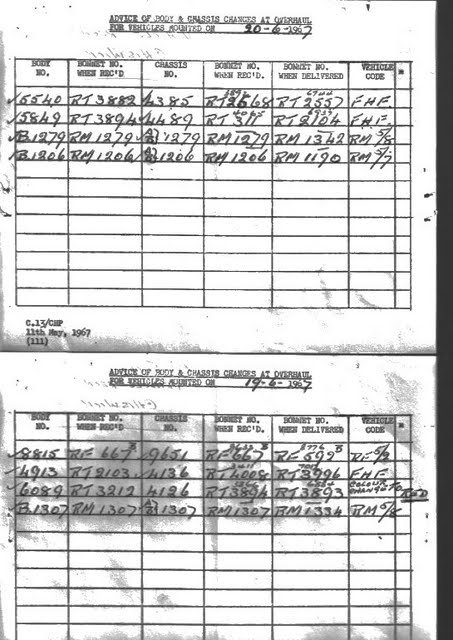 ADVICE OF BODY & CHASSIS CHANGES AT OVERHAUL
FOR VEHICLES MOUNTED ON 20-6-1967
BODY NO. BONNET NO. WHEN REC'D CHASSIS NO. BONNET NO. WHEN REC'D. BONNET NO. WHEN DELIVERED VEHICLE CODE *
✓5540 RT3882 ✓4385 RT2568 RT2557 FHF
✓5849 RT3894 ✓4489 RT311 RT2104 FHF
✓B1279 RM1279 1279 RM1279 RM1342 RM 5/8
✓B1206 RM1206 1206 RM1206 RM1190 RM 5/7
C.13/CHP
11th May, 1967
(111)
ADVICE OF BODY & CHASSIS CHANGES AT OVERHAUL
FOR VEHICLES MOUNTED ON 19-6-1967
BODY NO. BONNET NO. WHEN REC'D CHASSIS NO. BONNET NO. WHEN REC'D. BONNET NO. WHEN DELIVERED VEHICLE CODE *
✓8815 RF 667 B ✓9651 RF 667 B RF 599 B RF 5/2
✓4913 RT2103 ✓4136 RT4008 RT2996 FHF
✓6089 RT3212 4126 RT3894 RT3893 COLOUR CHANGE TO RED
✓B1307 RM1307 1307 RM1307 RM1334 RM 5/8